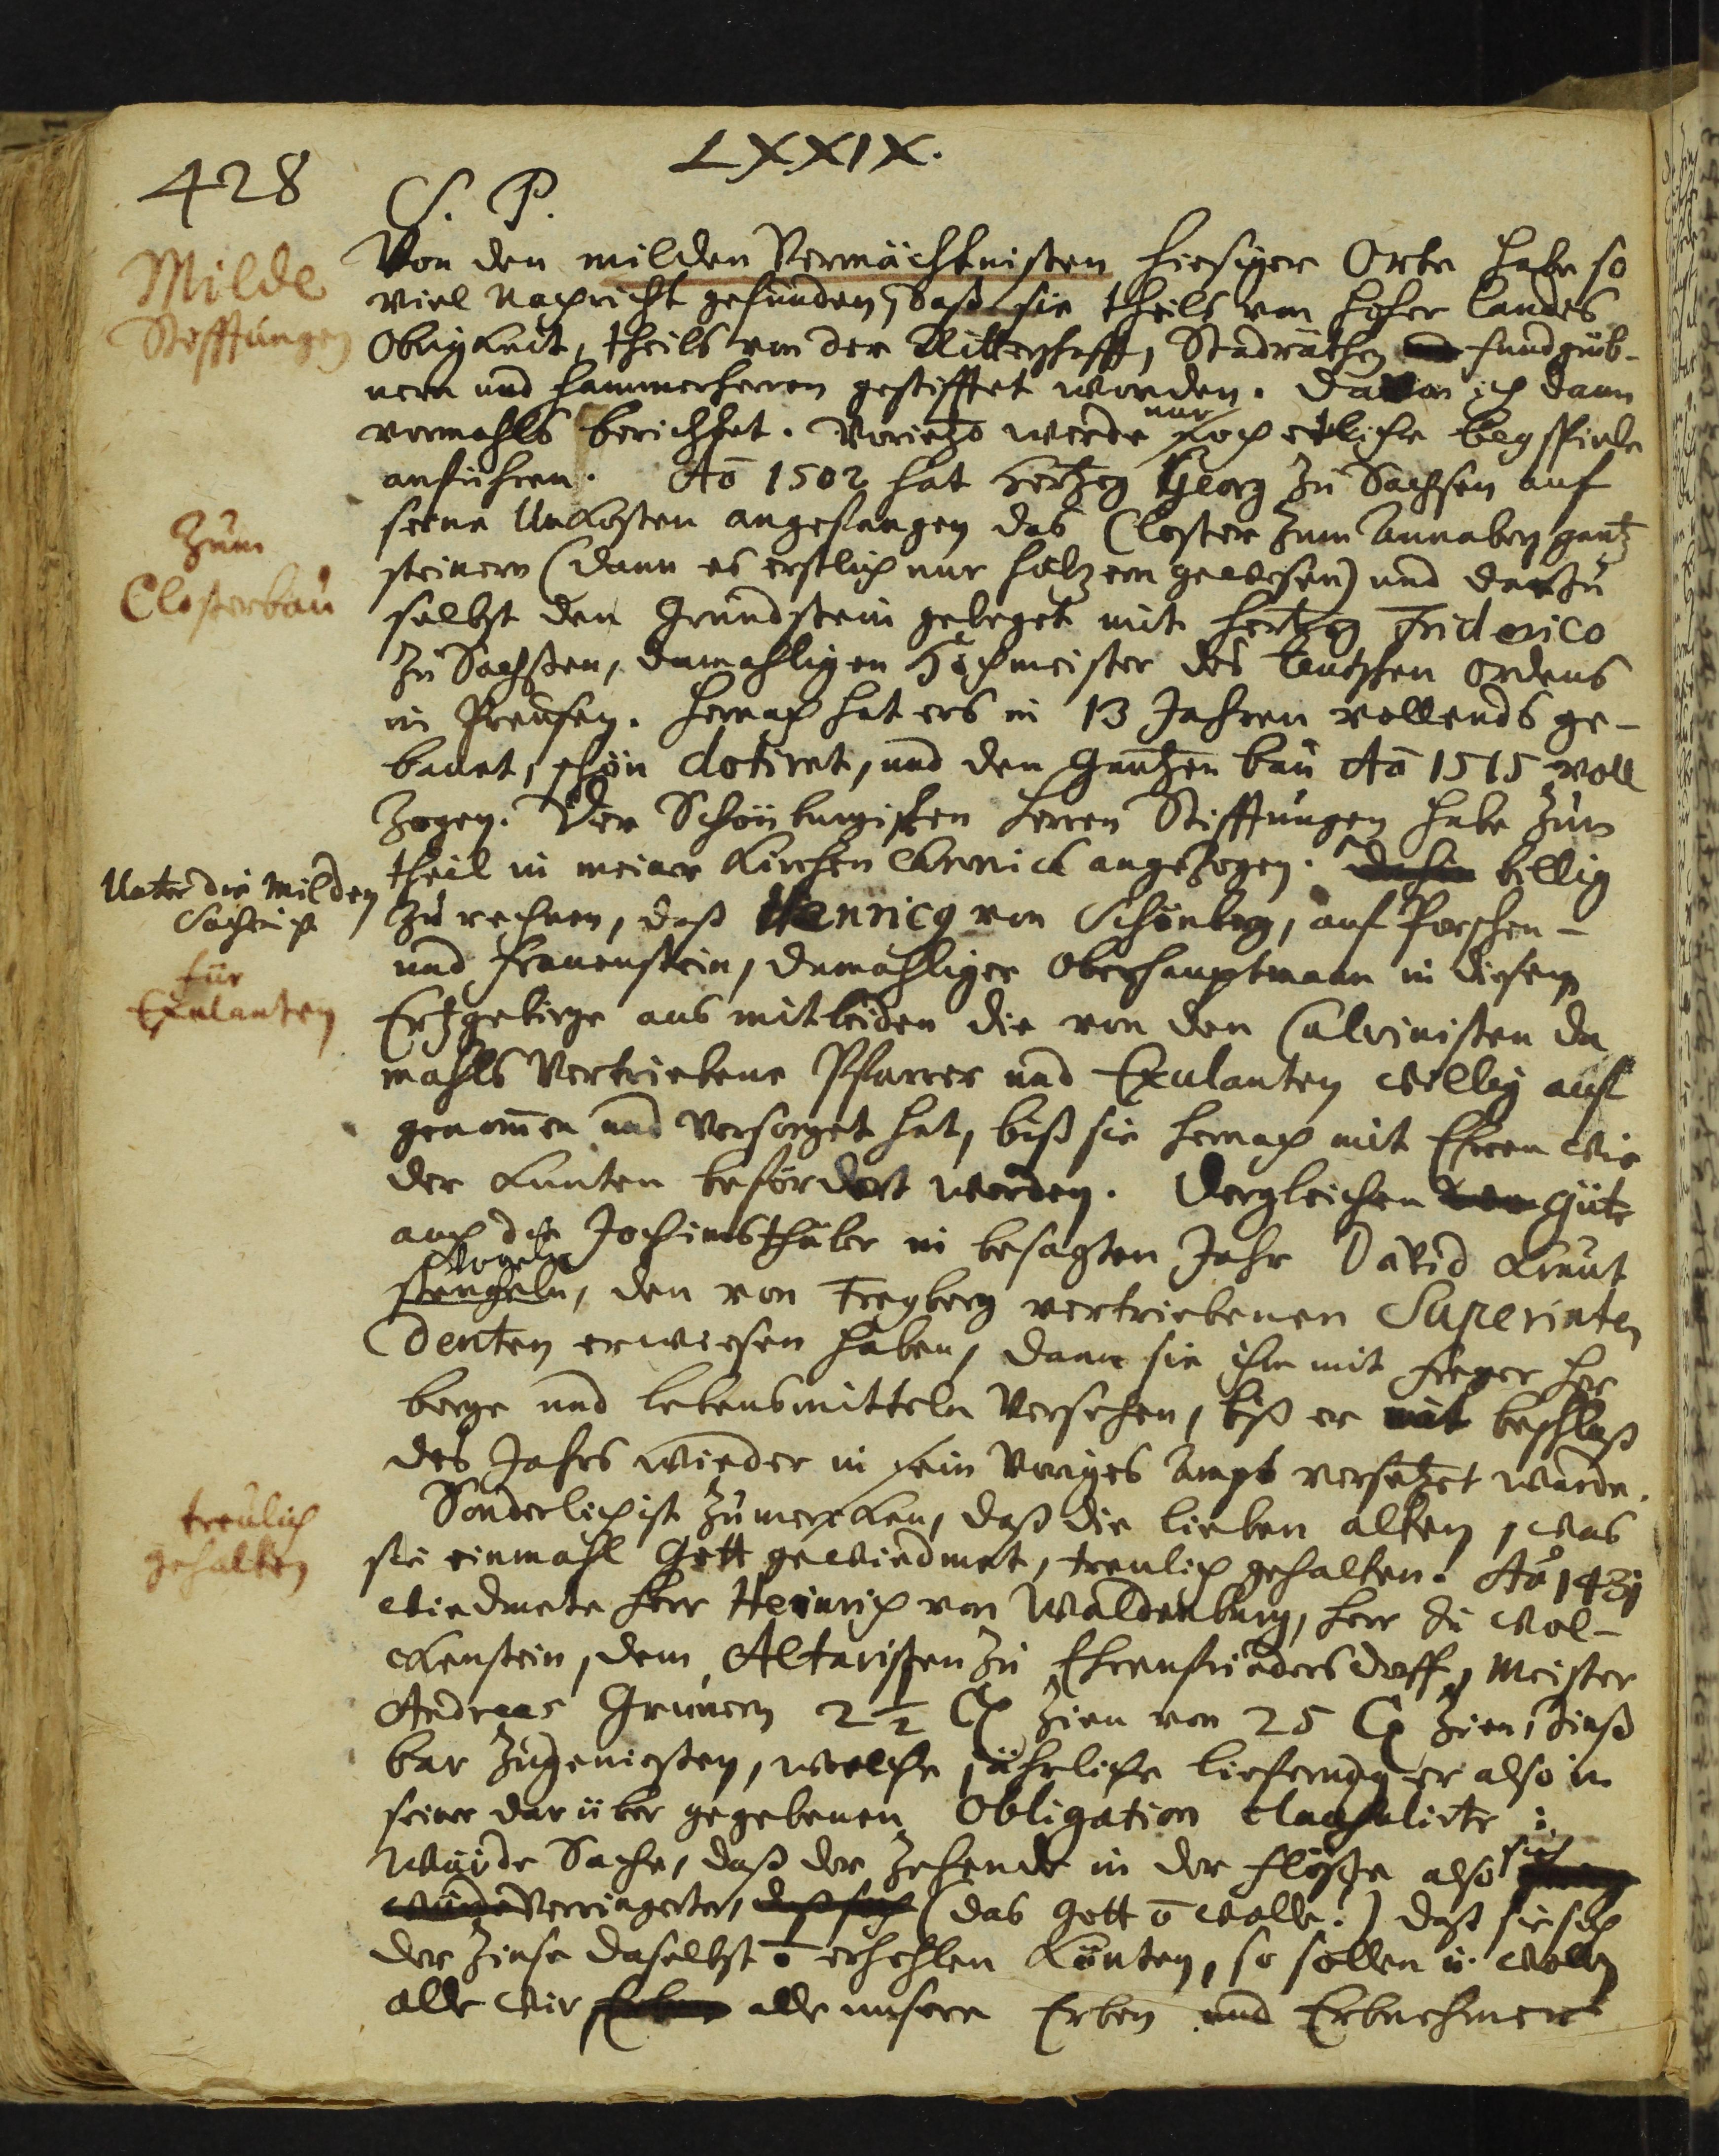 LXXIX.
428
S. P.
Milde
Stifftungen
Von den milden Vermächtnisten hiesiger Orte habe so
viel Nachricht gefunden, daß sie theils von hoher Landes
Obrigkeit, theils von der Ritterschafft, Stadräthen fundgrüb-
nern und Hammerherren gestifftet worden. Davon ich dann
vormahls berichtet. Vorietzo werde nur noch etliche beyspiele
anführen. Aō 1502 hat Hertzog Georg zu Sachsen auf
Zum
Closterbau
seine Unkosten angefangen das Closter zum Annaberg gantz
steinern (dann es erstlich nur höltzern gewesen) und darzu
selbst den Grundstein geleget mit Hertzog Friderico
zu Sachßen, damahligen Hochmeister des teutschen Ordens
in Preussen. Hernach hat ers in 13 Jahren vollends ge-
bauet, schön dotiret, und den gantzen bau Aō 1515 voll
zogen. Der Schönburgischen Herren Stifftungen habe zum
theil in meiner Kirchen Chronick angezogen. billig
Unter die milden
Sachen ist
zu rechnen, daß Henricg von Schönberg, auf Porschen-
und Frauenstein, damahliger Oberhauptmann in diesem
für
Exulanten
Ertzgebirge aus mitleiden die von den Calvinisten da
mahls Vertriebene Pfarrer und Exulanten willig auf
genom̄en und versorget hat, biß sie hernach mit Ehren wie
der kunten befördert werden. Dergleichen güte
auch die Jochimsthäler in besagten Jahr David Kraut
vogeln
stengeln, den von Freyberg vertriebenen Superinten
denten erwiesen haben, dann sie ihn mit freyer Her
berge und lebensmitteln versehen, biß er mit beschluß
des Jahrs wieder in sein voriges Ampt versetzet wurde.
treulich
gehalten
Sonderlich ist zumercken, daß die lieben alten, was
sie einmahl Gott gewiedmet, treulich gehalten. Aō 1431
wiedmete Herr Heinrich von Waldenburg, Herr zu Wol-
ckenstein, dem Altaristen zu Ehrenfriedersdorff, Meister
Andreas Grünern 2½ C Zien von 25 C Zien, Zinß
bar zugeniesten, welche jährliche lieferung er also in
seiner darüber gegebenen Obligation clausulirte:
Würde Sache, daß der Zehende in der flösse also sich
würde verringerte, (das Gott ō wolle!) daß sie sich
der Zinse daselbst ō erhohlen könten, so sollen u. wolln
alle wir alle unsere Erben und Erbnehmer